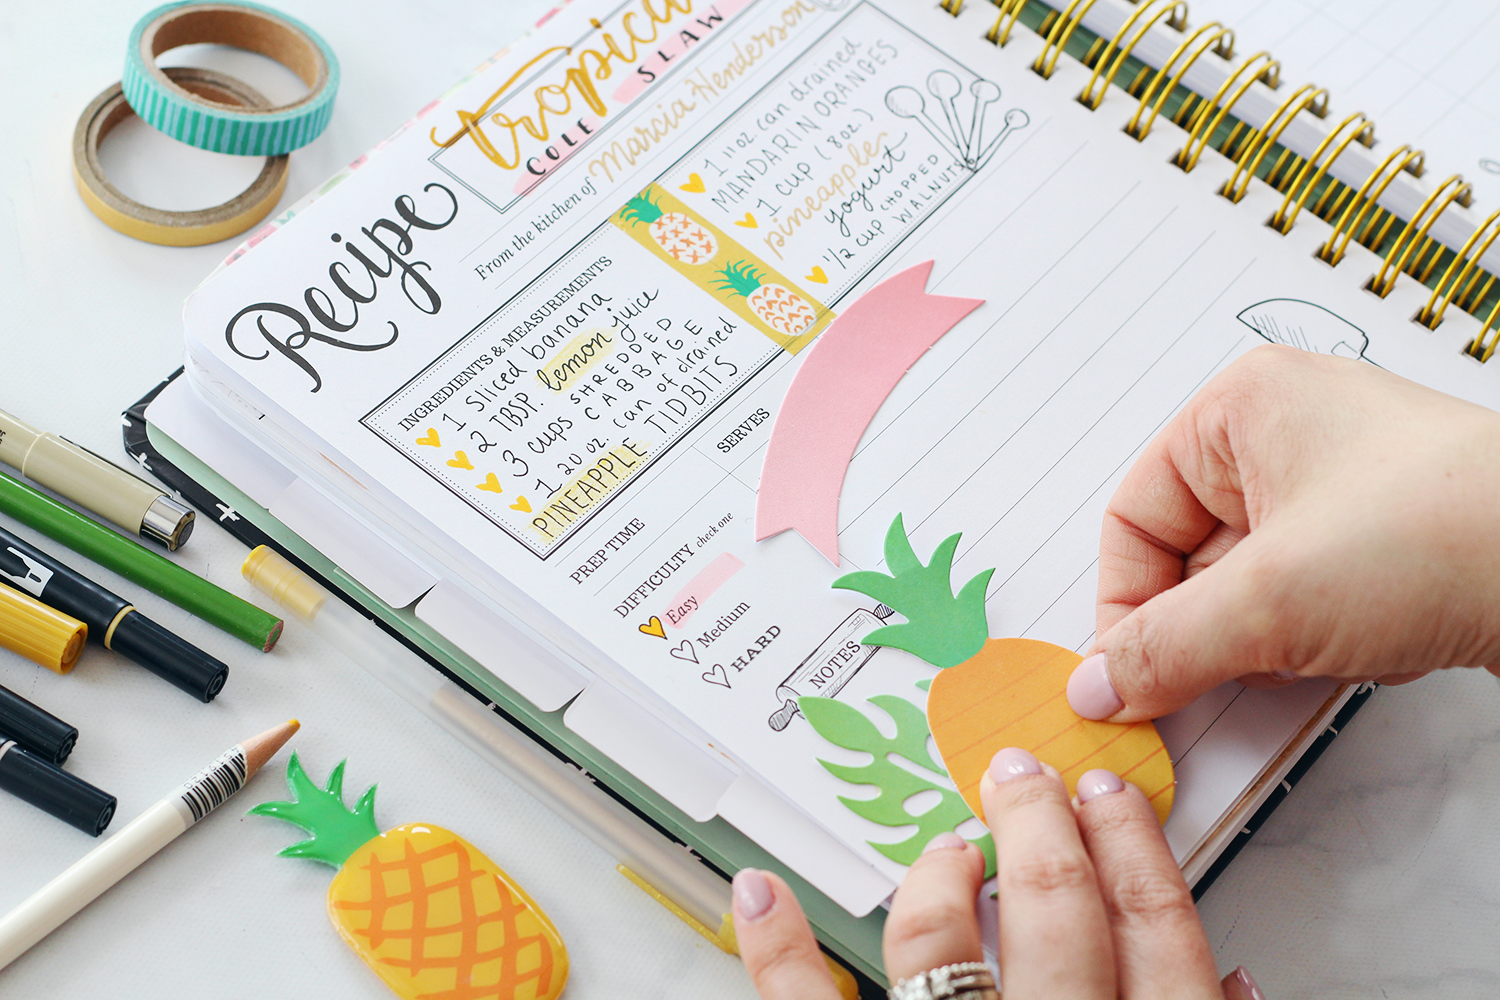 Recipe
tropical
COLE SLAW
From the kitchen of Marcia Henderson
INGREDIENTS & MEASUREMENTS
1 sliced banana
2 TBSP. lemon juice
3 cups SHREDDED
CABBAGE
1 20 oz. can of drained
PINEAPPLE TIDBITS
1 11 oz. can drained
MANDARIN ORANGES
1 CUP (8oz.)
pineapple
yogurt
1/2 CUP CHOPPED
WALNUTS
PREP TIME
SERVES
DIFFICULTY check one
Easy
Medium
HARD
NOTES